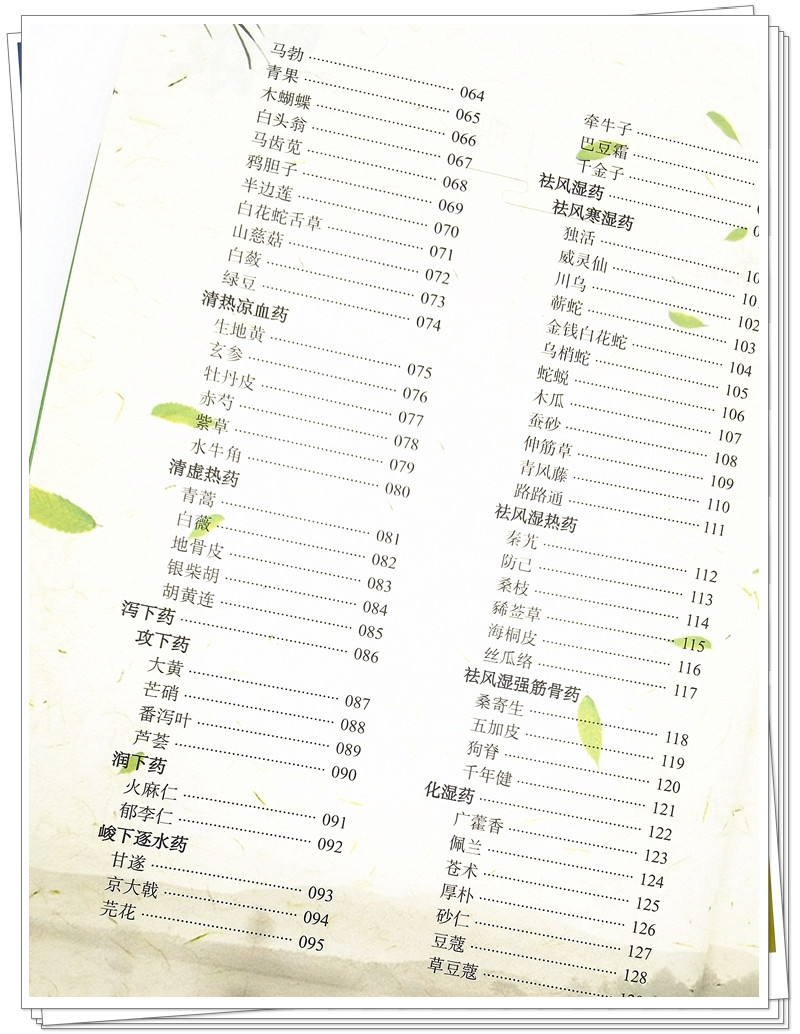 马勃 064
青果 065
木蝴蝶 066
白头翁 067
马齿苋 068
鸦胆子 069
半边莲 070
白花蛇舌草 071
山慈菇 072
白蔹 073
绿豆 074
清热凉血药
生地黄 075
玄参 076
牡丹皮 077
赤芍 078
紫草 079
水牛角 080
清虚热药
青蒿 081
白薇 082
地骨皮 083
银柴胡 084
胡黄连 085
泻下药 086
攻下药
大黄 087
芒硝 088
番泻叶 089
芦荟 090
润下药
火麻仁 091
郁李仁 092
峻下逐水药
甘遂 093
京大戟 094
芫花 095
牵牛子
巴豆霜
千金子
祛风湿药
祛风寒湿药
独活 10
威灵仙 10
川乌 102
蕲蛇 103
金钱白花蛇 104
乌梢蛇 105
蛇蜕 106
木瓜 107
蚕砂 108
伸筋草 109
青风藤 110
路路通 111
祛风湿热药
秦艽 112
防己 113
桑枝 114
豨莶草 115
海桐皮 116
丝瓜络 117
祛风湿强筋骨药
桑寄生 118
五加皮 119
狗脊 120
千年健 121
化湿药 122
广藿香 123
佩兰 124
苍术 125
厚朴 126
砂仁 127
豆蔻 128
草豆蔻